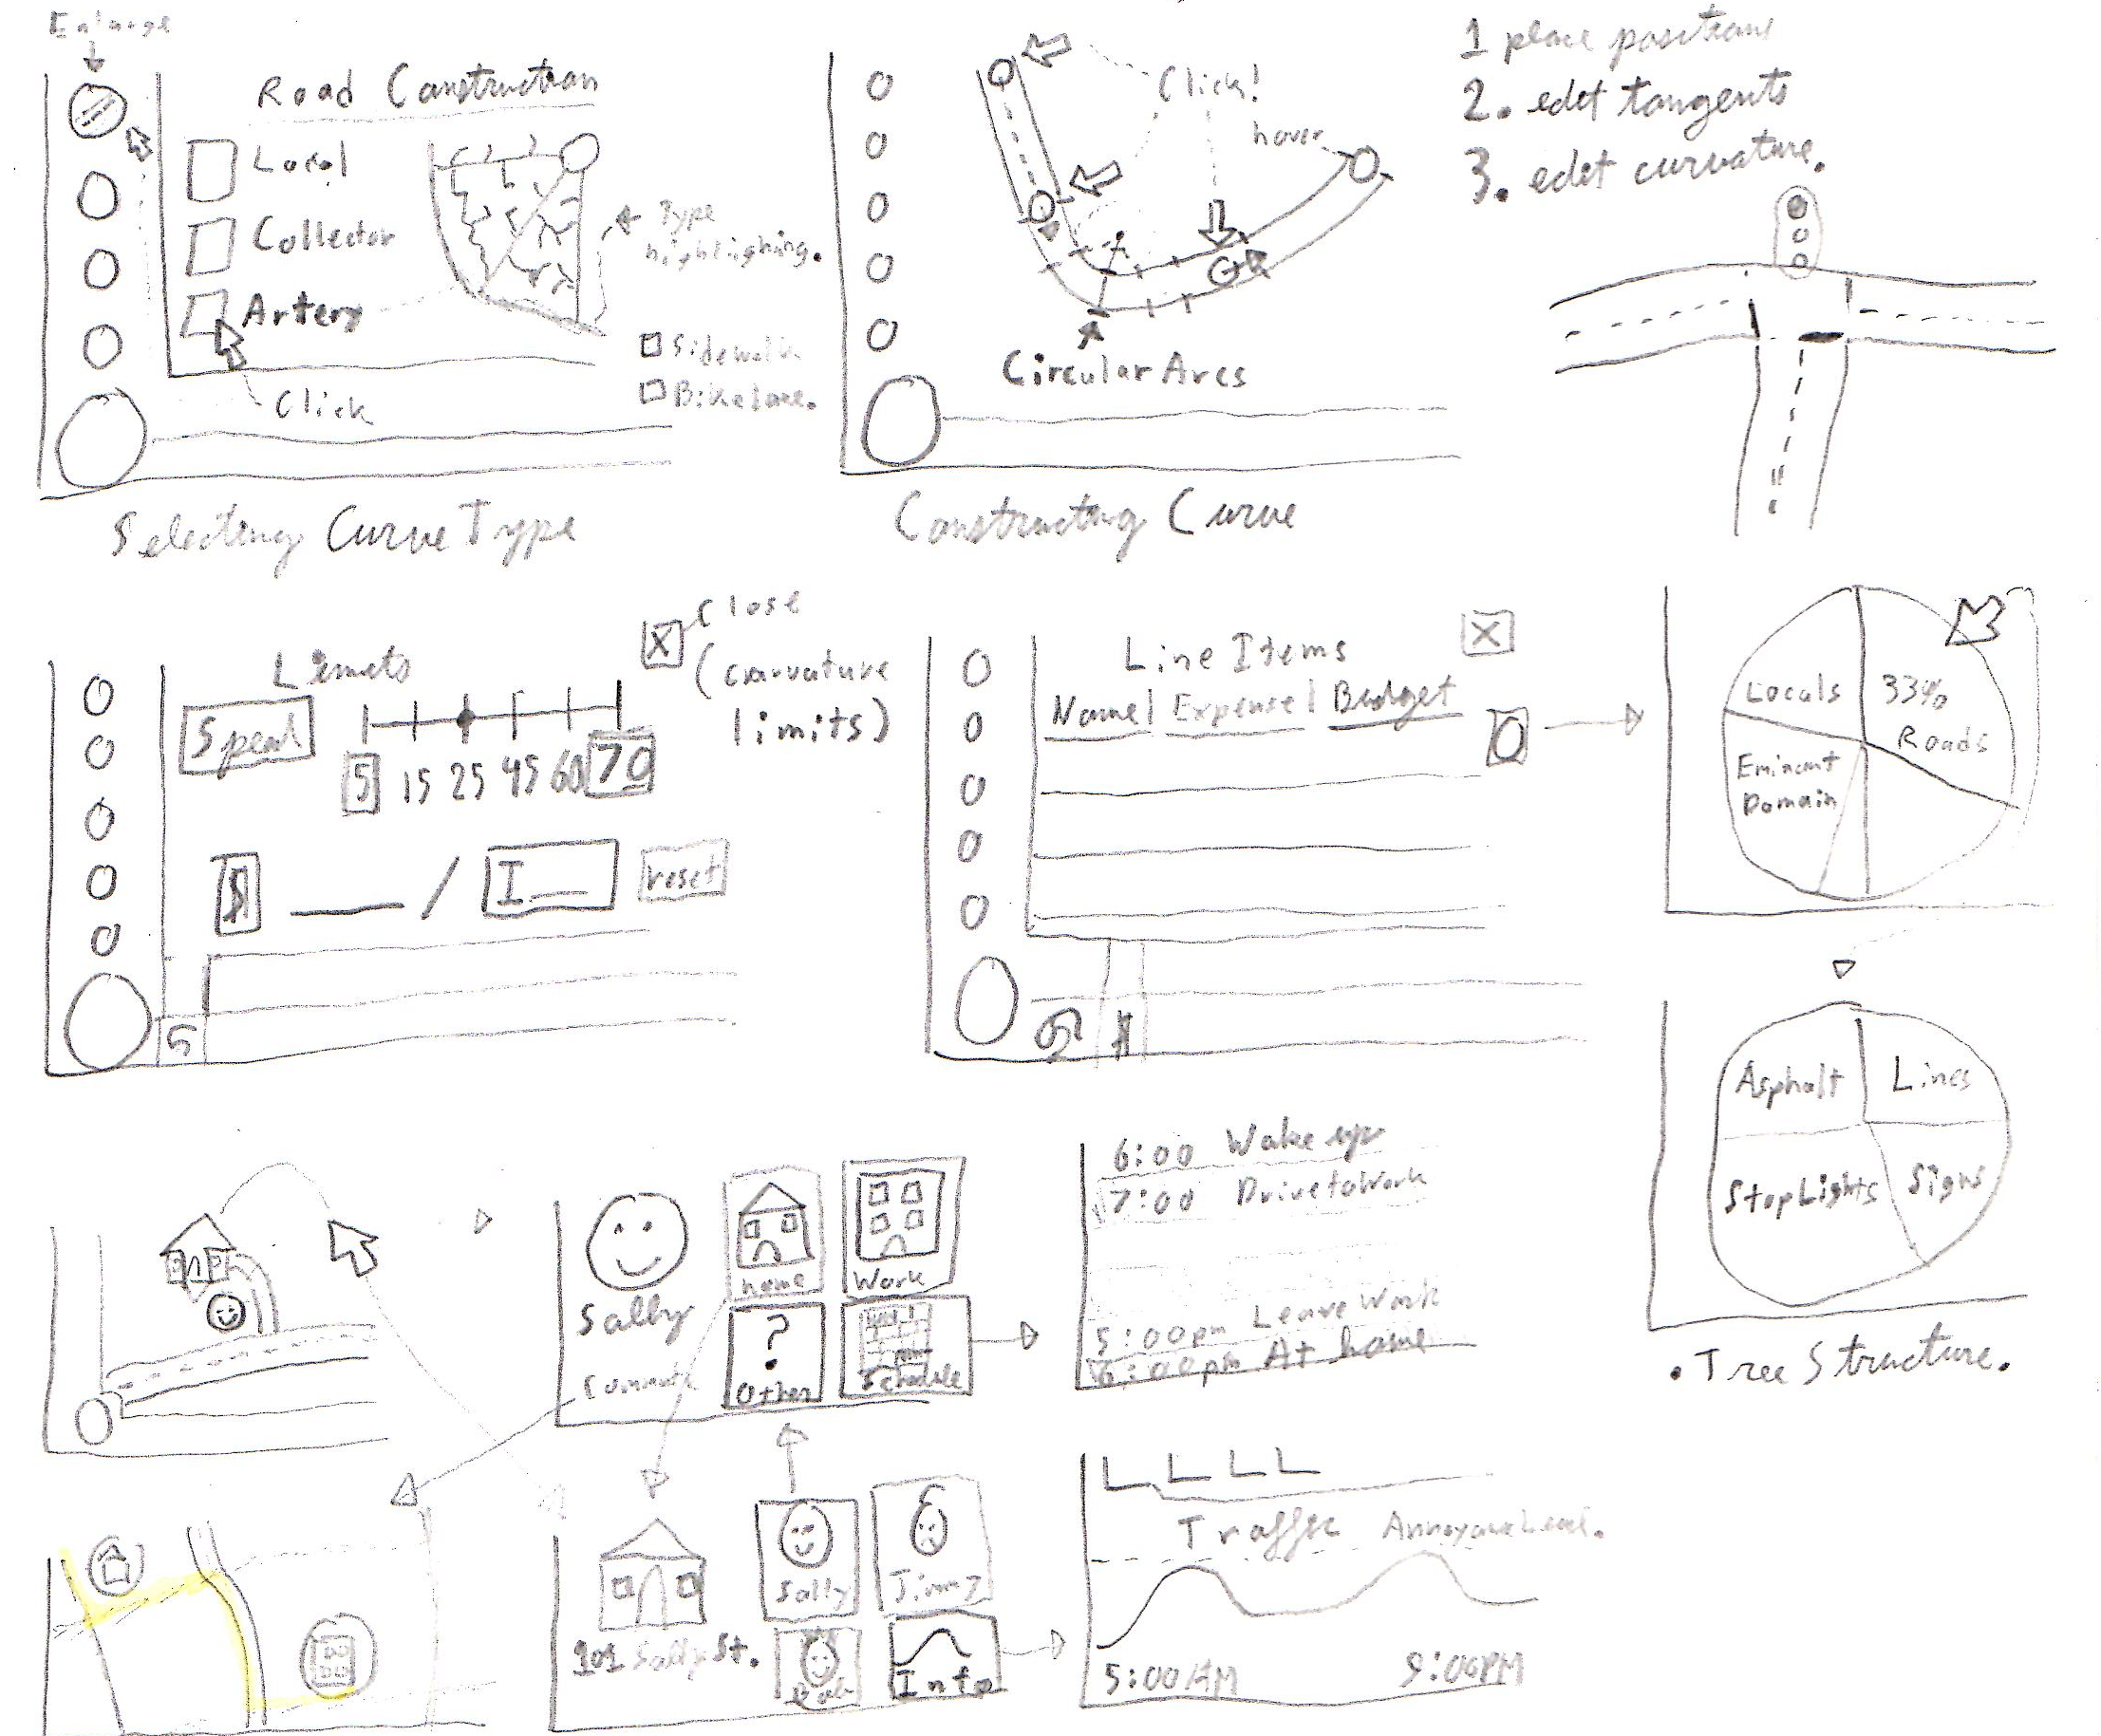 Enlarge
Road Construction
Local
Collector
Artery
Type
highlighing.
Sidewalk
Bikelane.
Click
Selecting Curve Type
Click!
hover
Circular Arcs
Constructing Curve
1 place positions
2. edit tangents
3. edit curvature.
Limits
X Close
(curvature
limits)
Speed
5 15 25 45 60 70
$ / I reset
5
Line Items
X
Name | Expense | Budget
5 $
Locals
33%
Roads
Eminent
Domain
Asphalt
Lines
Stop Lights
Signs
. Tree Structure.
Sally
Commute
home
Work
?
Other
Schedule
6:00 Wake up
7:00 Drive to Work
5:00pm Leave Work
6:00pm At home
101 Sally St.
Sally
Jimmy
Bob
Info
Traffic Annoyance Level.
5:00AM
9:00PM